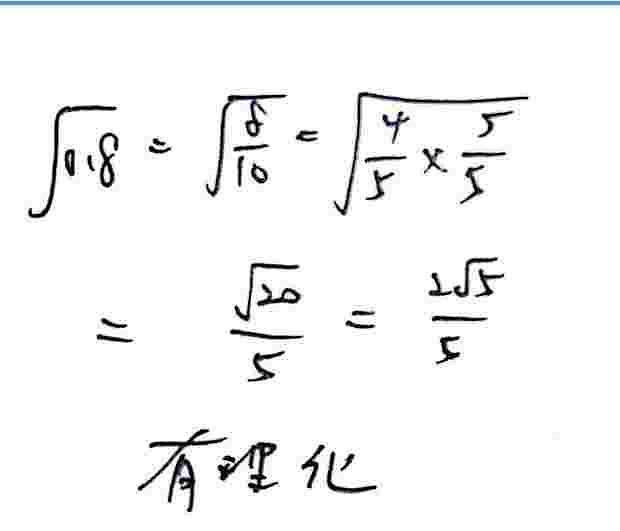 √0.8 = √(8/10) = √(4/5 × 5/5)
= √20/5 = 2√5/5
有理化